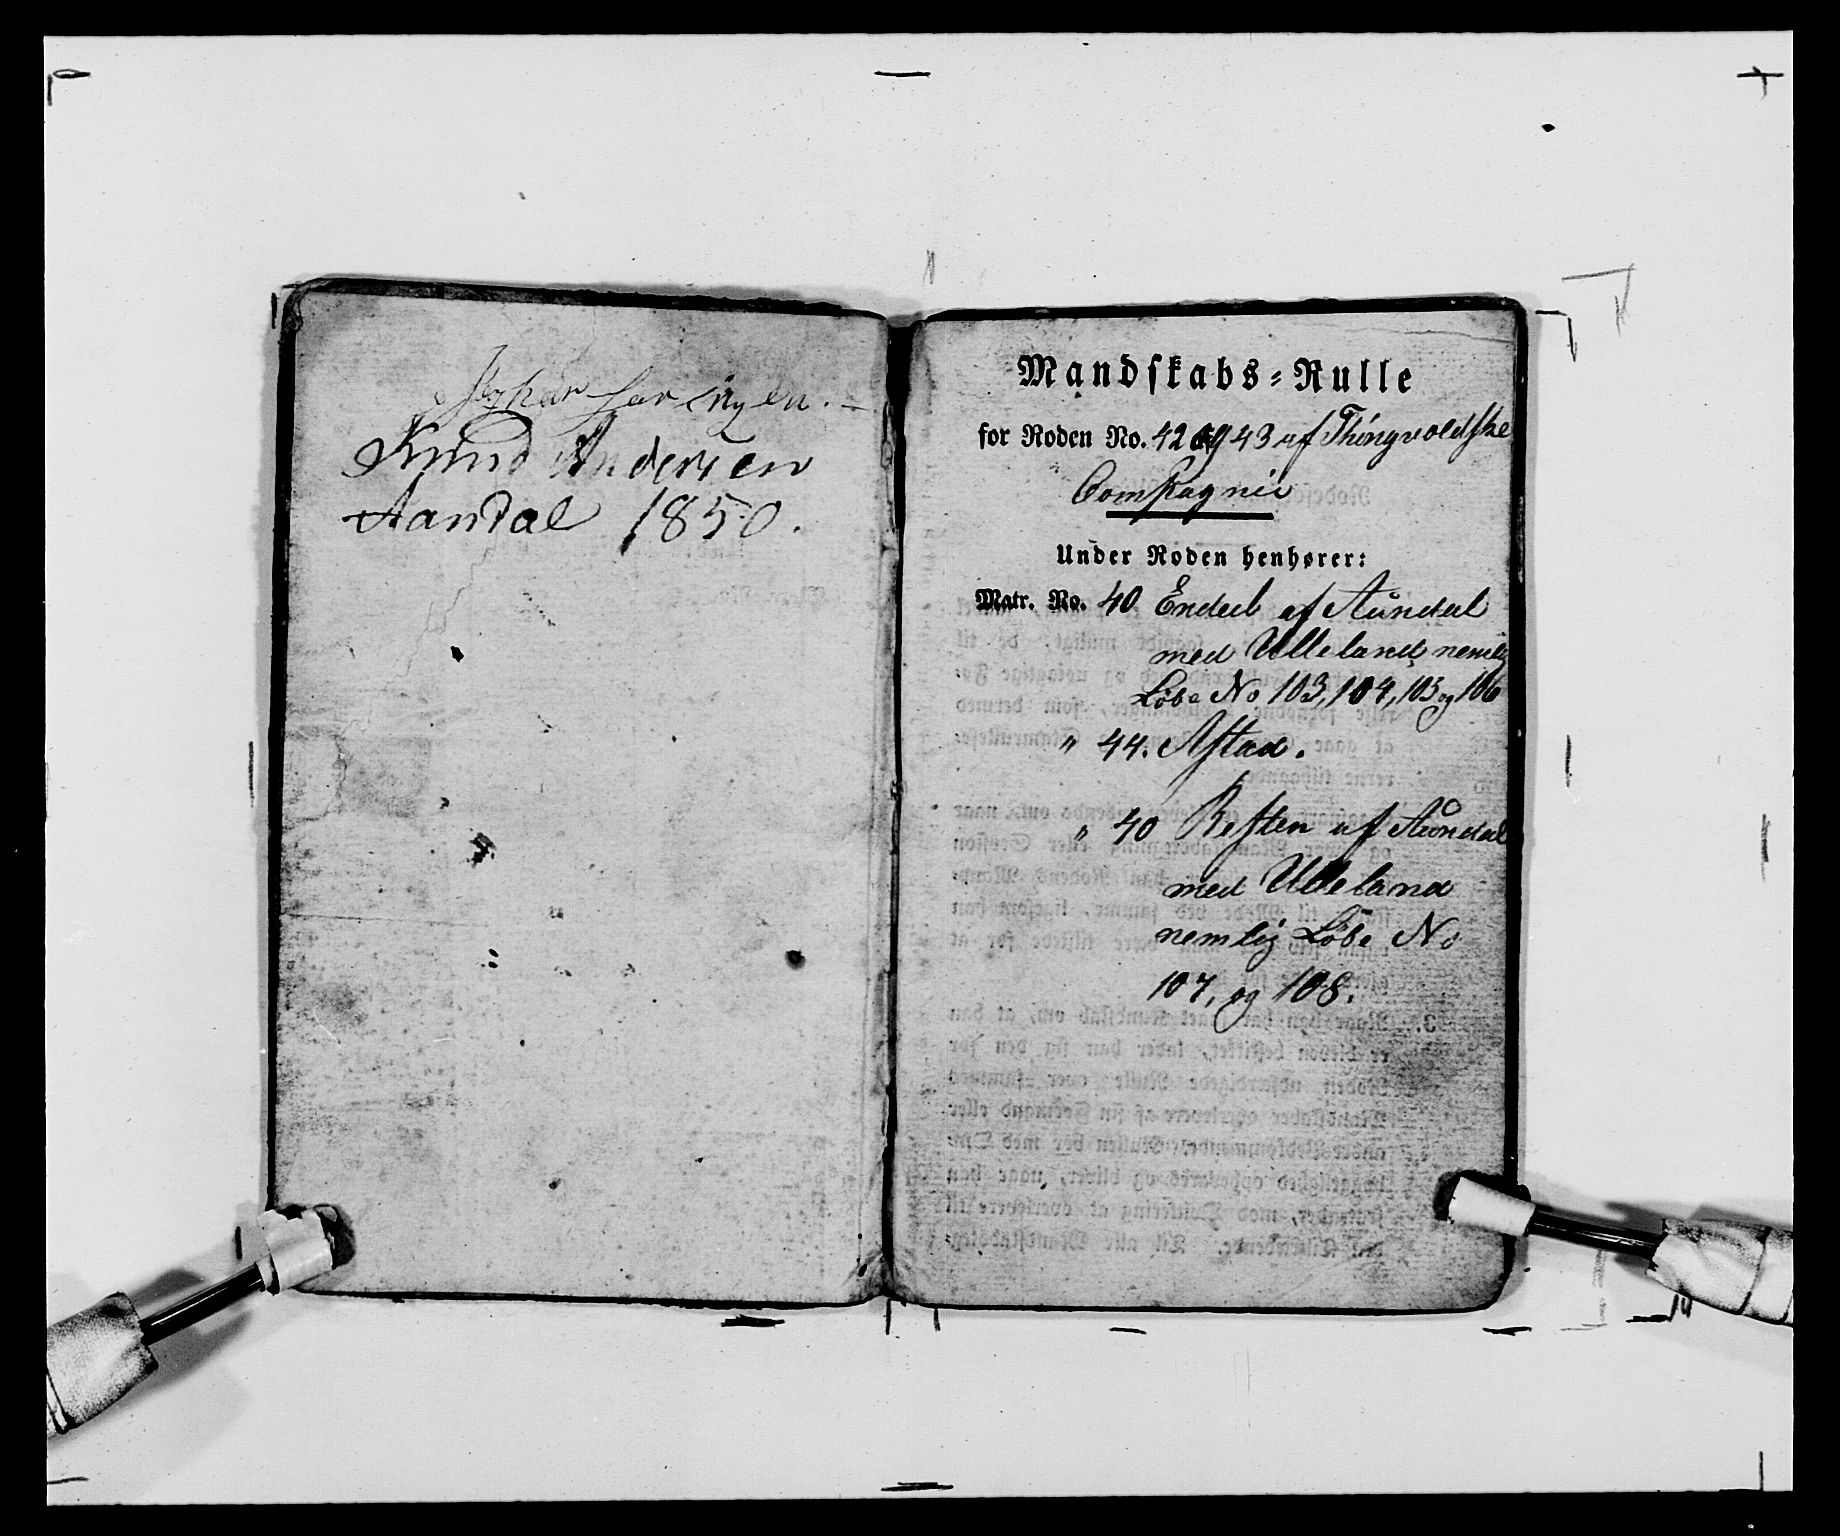 Jeg har har ingen.
Knud Andersen
Aandal 1850.
Mandskabs-Rulle
for Roden No. 42 og 43 af Thingvoldske
Compagnie
Under Roden henhører:
Matr. No. 40 Endeel af Aándal
med Ulleland nemlig
Løbe No 103, 104, 105 og 106
" 44. Astad.
" 40 Resten af Aándal
med Ulleland
nemlig Løbe No
107, og 108.